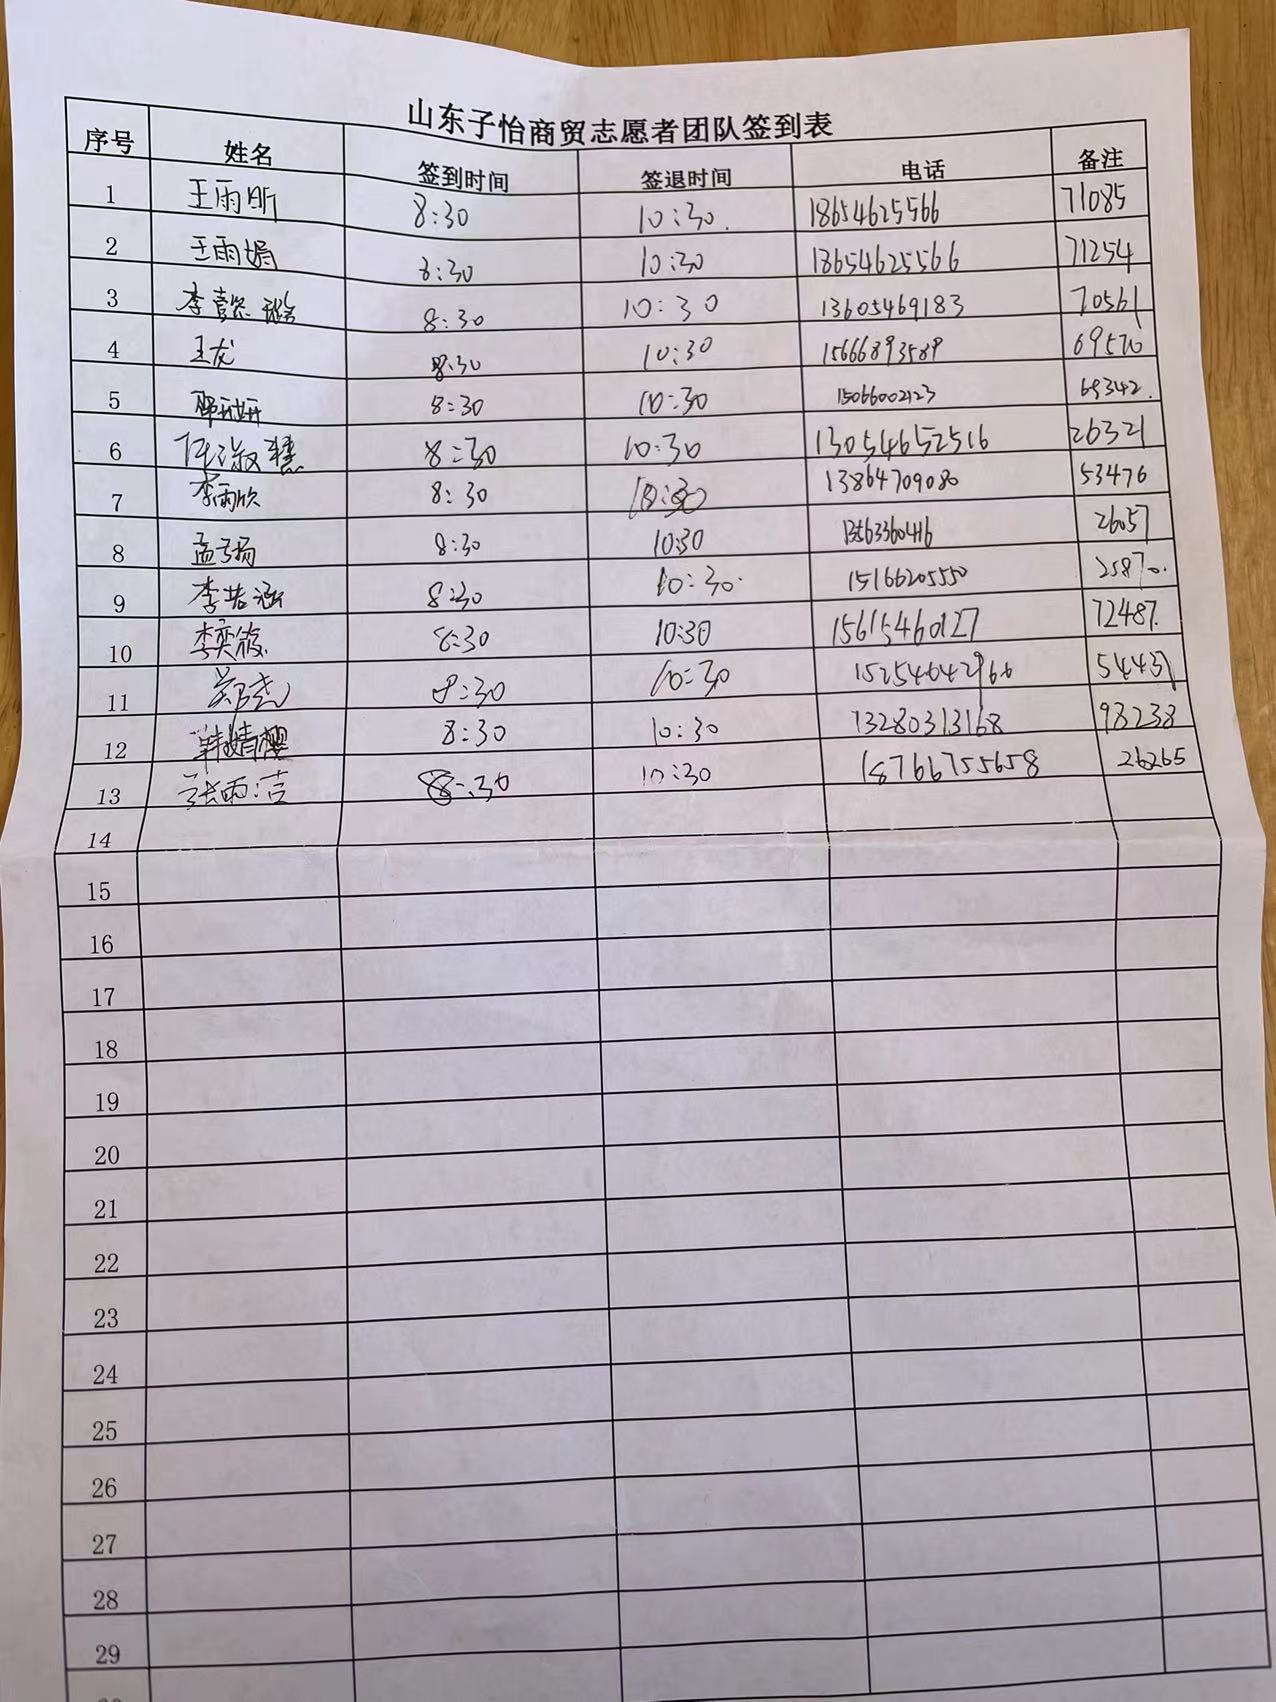 山东子怡商贸志愿者团队签到表
序号 姓名 签到时间 签退时间 电话 备注
1 王雨昕 8:30 10:30. 18654625566 71085
2 王雨娟 8:30 10:30 18654625566 71254
3 李懿 8:30 10:30 13605469183 70561
4 王龙 8:30 10:30 15666893589 69570
5 8:30 10:30 15066002123 69342.
6 任淑慧 8:30 10:30 13054652516 26321
7 李雨欣 8:30 10:30 13864709080 53476
8 孟子扬 8:30 10:30 13563360416 26057
9 李浩涵 8:30 10:30. 15166205550 25870.
10 李奕筱 8:30 10:30 15615460127 72487.
11 8:30 10:30 15254642966 54437
12 韩婧樱 8:30 10:30 13280313168 98238
13 张雨洁 8:30 10:30 18766755658 26265
14
15
16
17
18
19
20
21
22
23
24
25
26
27
28
29